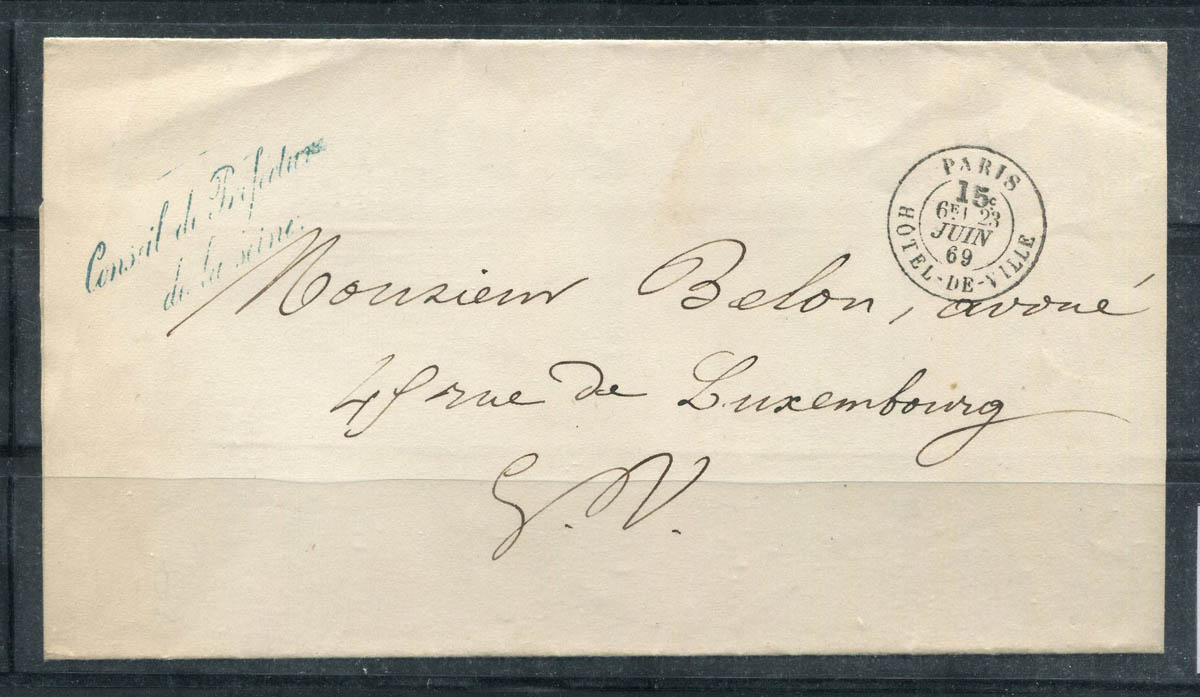 Conseil de Préfecture
de la Seine.
PARIS
15c
6E/ 23
JUIN
69
HÔTEL-DE-VILLE
Monsieur Belon, avoué
45 rue de Luxembourg
E. V.